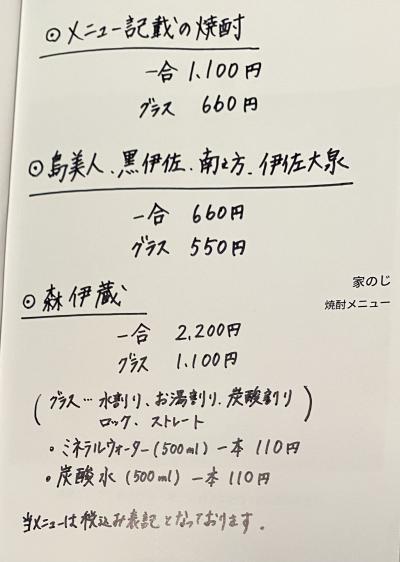 ⊙メニュー記載の焼酎
一合 1,100円
グラス 660円
⊙島美人、黒伊佐、南之方、伊佐大泉
一合 660円
グラス 550円
家のじ
焼酎メニュー
⊙森伊蔵
一合 2,200円
グラス 1,100円
(グラス…水割り、お湯割り、炭酸割り
ロック、ストレート)
・ミネラルウォーター(500ml)一本 110円
・炭酸水(500ml)一本 110円
当メニューは税込み表記となっております。